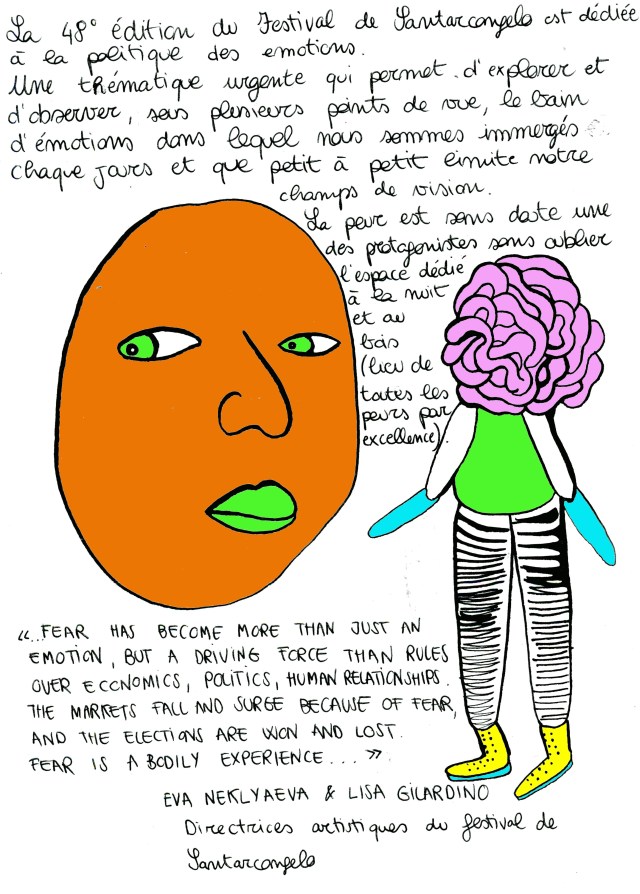 La 48° édition du Festival de Santarcangelo est dédiée
à la politique des emotions.
Une thématique urgente qui permet d'explorer et
d'observer, sous plusieurs points de vue, le bain
d'émotions dans lequel nous sommes immergés
chaque jours et que petit à petit limite notre
champs de vision.
La peur est sans doute une
des protagonistes sans oublier
l'espace dédié
à la nuit
et au
bois
(lieu de
toutes les
peurs par
excellence).
"...FEAR HAS BECOME MORE THAN JUST AN
EMOTION, BUT A DRIVING FORCE THAN RULES
OVER ECONOMICS, POLITICS, HUMAN RELATIONSHIPS.
THE MARKETS FALL AND SURGE BECAUSE OF FEAR,
AND THE ELECTIONS ARE WON AND LOST.
FEAR IS A BODILY EXPERIENCE... »
EVA NEKLYAEVA & LISA GILARDINO
Directrices artistiques du festival de
Santarcangelo